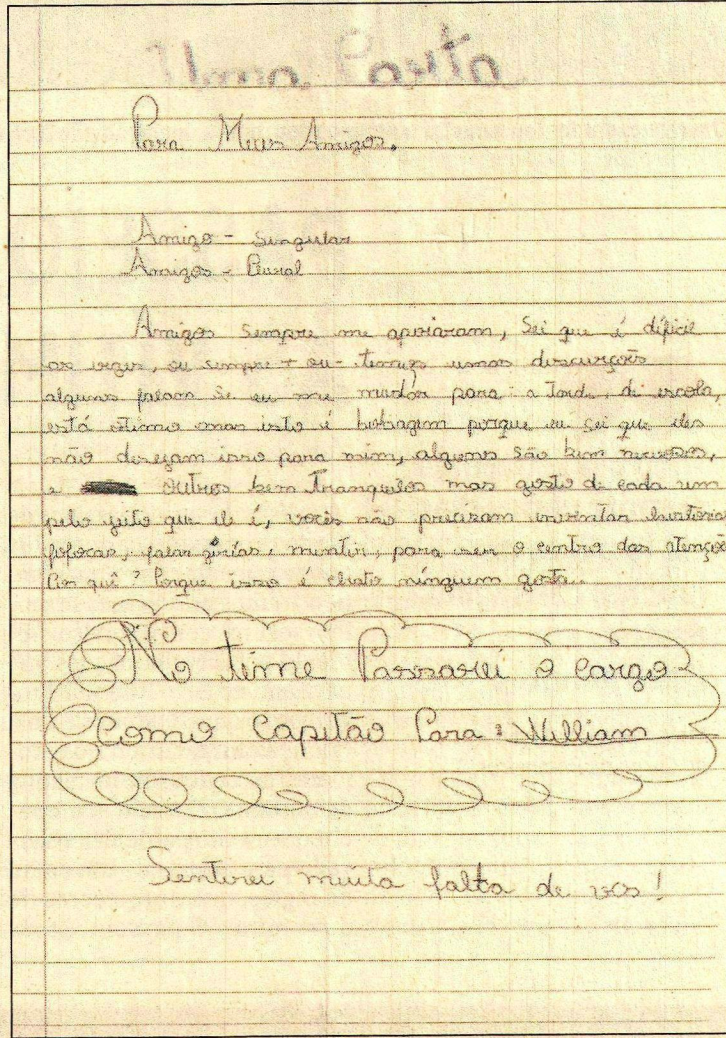 Uma Carta
Para Meus Amigos.
Amigo - Singular
Amigos - Plural
Amigos sempre me apoiaram, Sei que é dificil
as vezes, ou sempre + ou - temos umas discurções
alguns falam se eu me mudar para a tarde, de escola,
está otimo mas isto é bobagem porque eu sei que eles
não desejam isso para mim, alguns são bem nervosos,
e outros bem tranquilos mas gosto de cada um
pelo jeito que ele é, vocês não precizam inventar historias
fofocas, falar gírias, mentir, para ser o centro das atenções
Por quê? Porque isso é chato ninguem gosta.
No time Passarei o cargo
como Capitão Para: William
Sentirei muita falta de vcs!